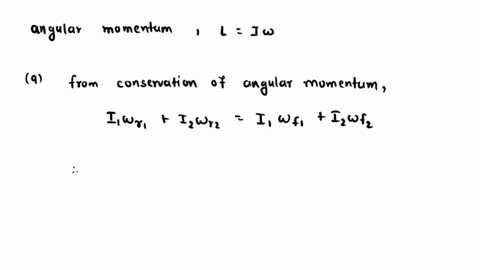 angular momentum , L = Iω
(a) from conservation of angular momentum,
I₁ω_γ₁ + I₂ω_γ₂ = I₁ ω_f₁ + I₂ωf₂
∴